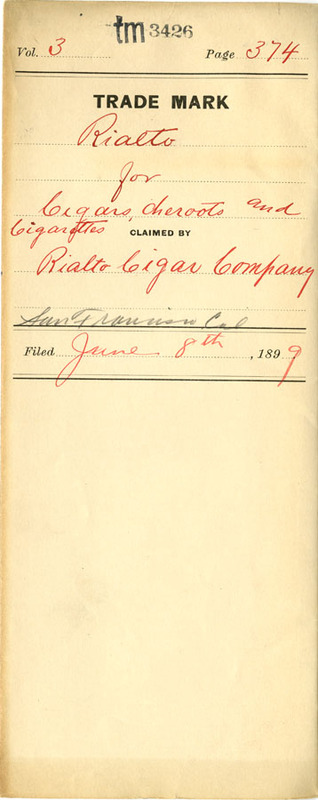 tm 3426
Vol. 3 Page 374
TRADE MARK
Rialto
for
Cigars, cheroots and
Cigarettes CLAIMED BY
Rialto Cigar Company
San Francisco Cal
Filed June 8th, 1899